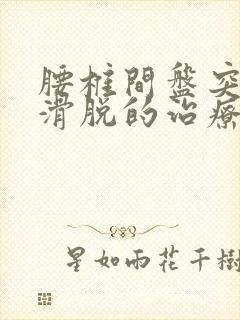 腰椎間盤突
滑脱的治療
星如雨花千樹